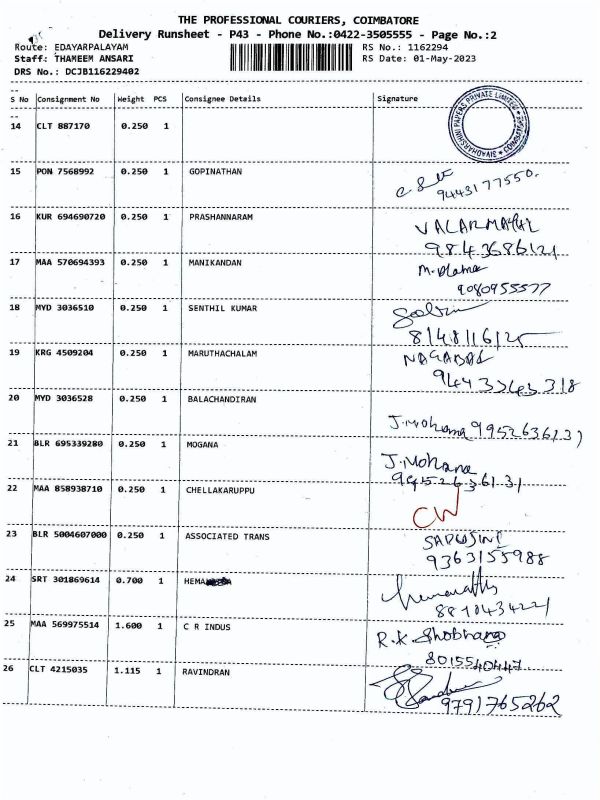 THE PROFESSIONAL COURIERS, COIMBATORE
Delivery Runsheet - P43 - Phone No.:0422-3505555 - Page No.:2
Route: EDAYARPALAYAM RS No.: 1162294
Staff: THAMEEM ANSARI RS Date: 01-May-2023
DRS No.: DCJB116229402
S No Consignment No Weight PCS Consignee Details Signature
14 CLT 887170 0.250 1
SIVADHARSHINI PAPERS PRIVATE LIMITED
15 PON 7568992 0.250 1 GOPINATHAN
9443177550.
16 KUR 694690720 0.250 1 PRASHANNARAM
VALARMATHI
9843686121
17 MAA 570694393 0.250 1 MANIKANDAN
9080955577
18 MYD 3036510 0.250 1 SENTHIL KUMAR
8148116125
19 KRG 4509204 0.250 1 MARUTHACHALAM
9443343318
20 MYD 3036528 0.250 1 BALACHANDIRAN
J.Mohana 9952636131
21 BLR 695339280 0.250 1 MOGANA
J.Mohana
22 MAA 858938710 0.250 1 CHELLAKARUPPU
CW
23 BLR 5004607000 0.250 1 ASSOCIATED TRANS
9363155988
24 SRT 301869614 0.700 1
8810434221
25 MAA 569975514 1.600 1 C R INDUS
R.K. Shobhana
8015540447
26 CLT 4215035 1.115 1 RAVINDRAN
9791765262